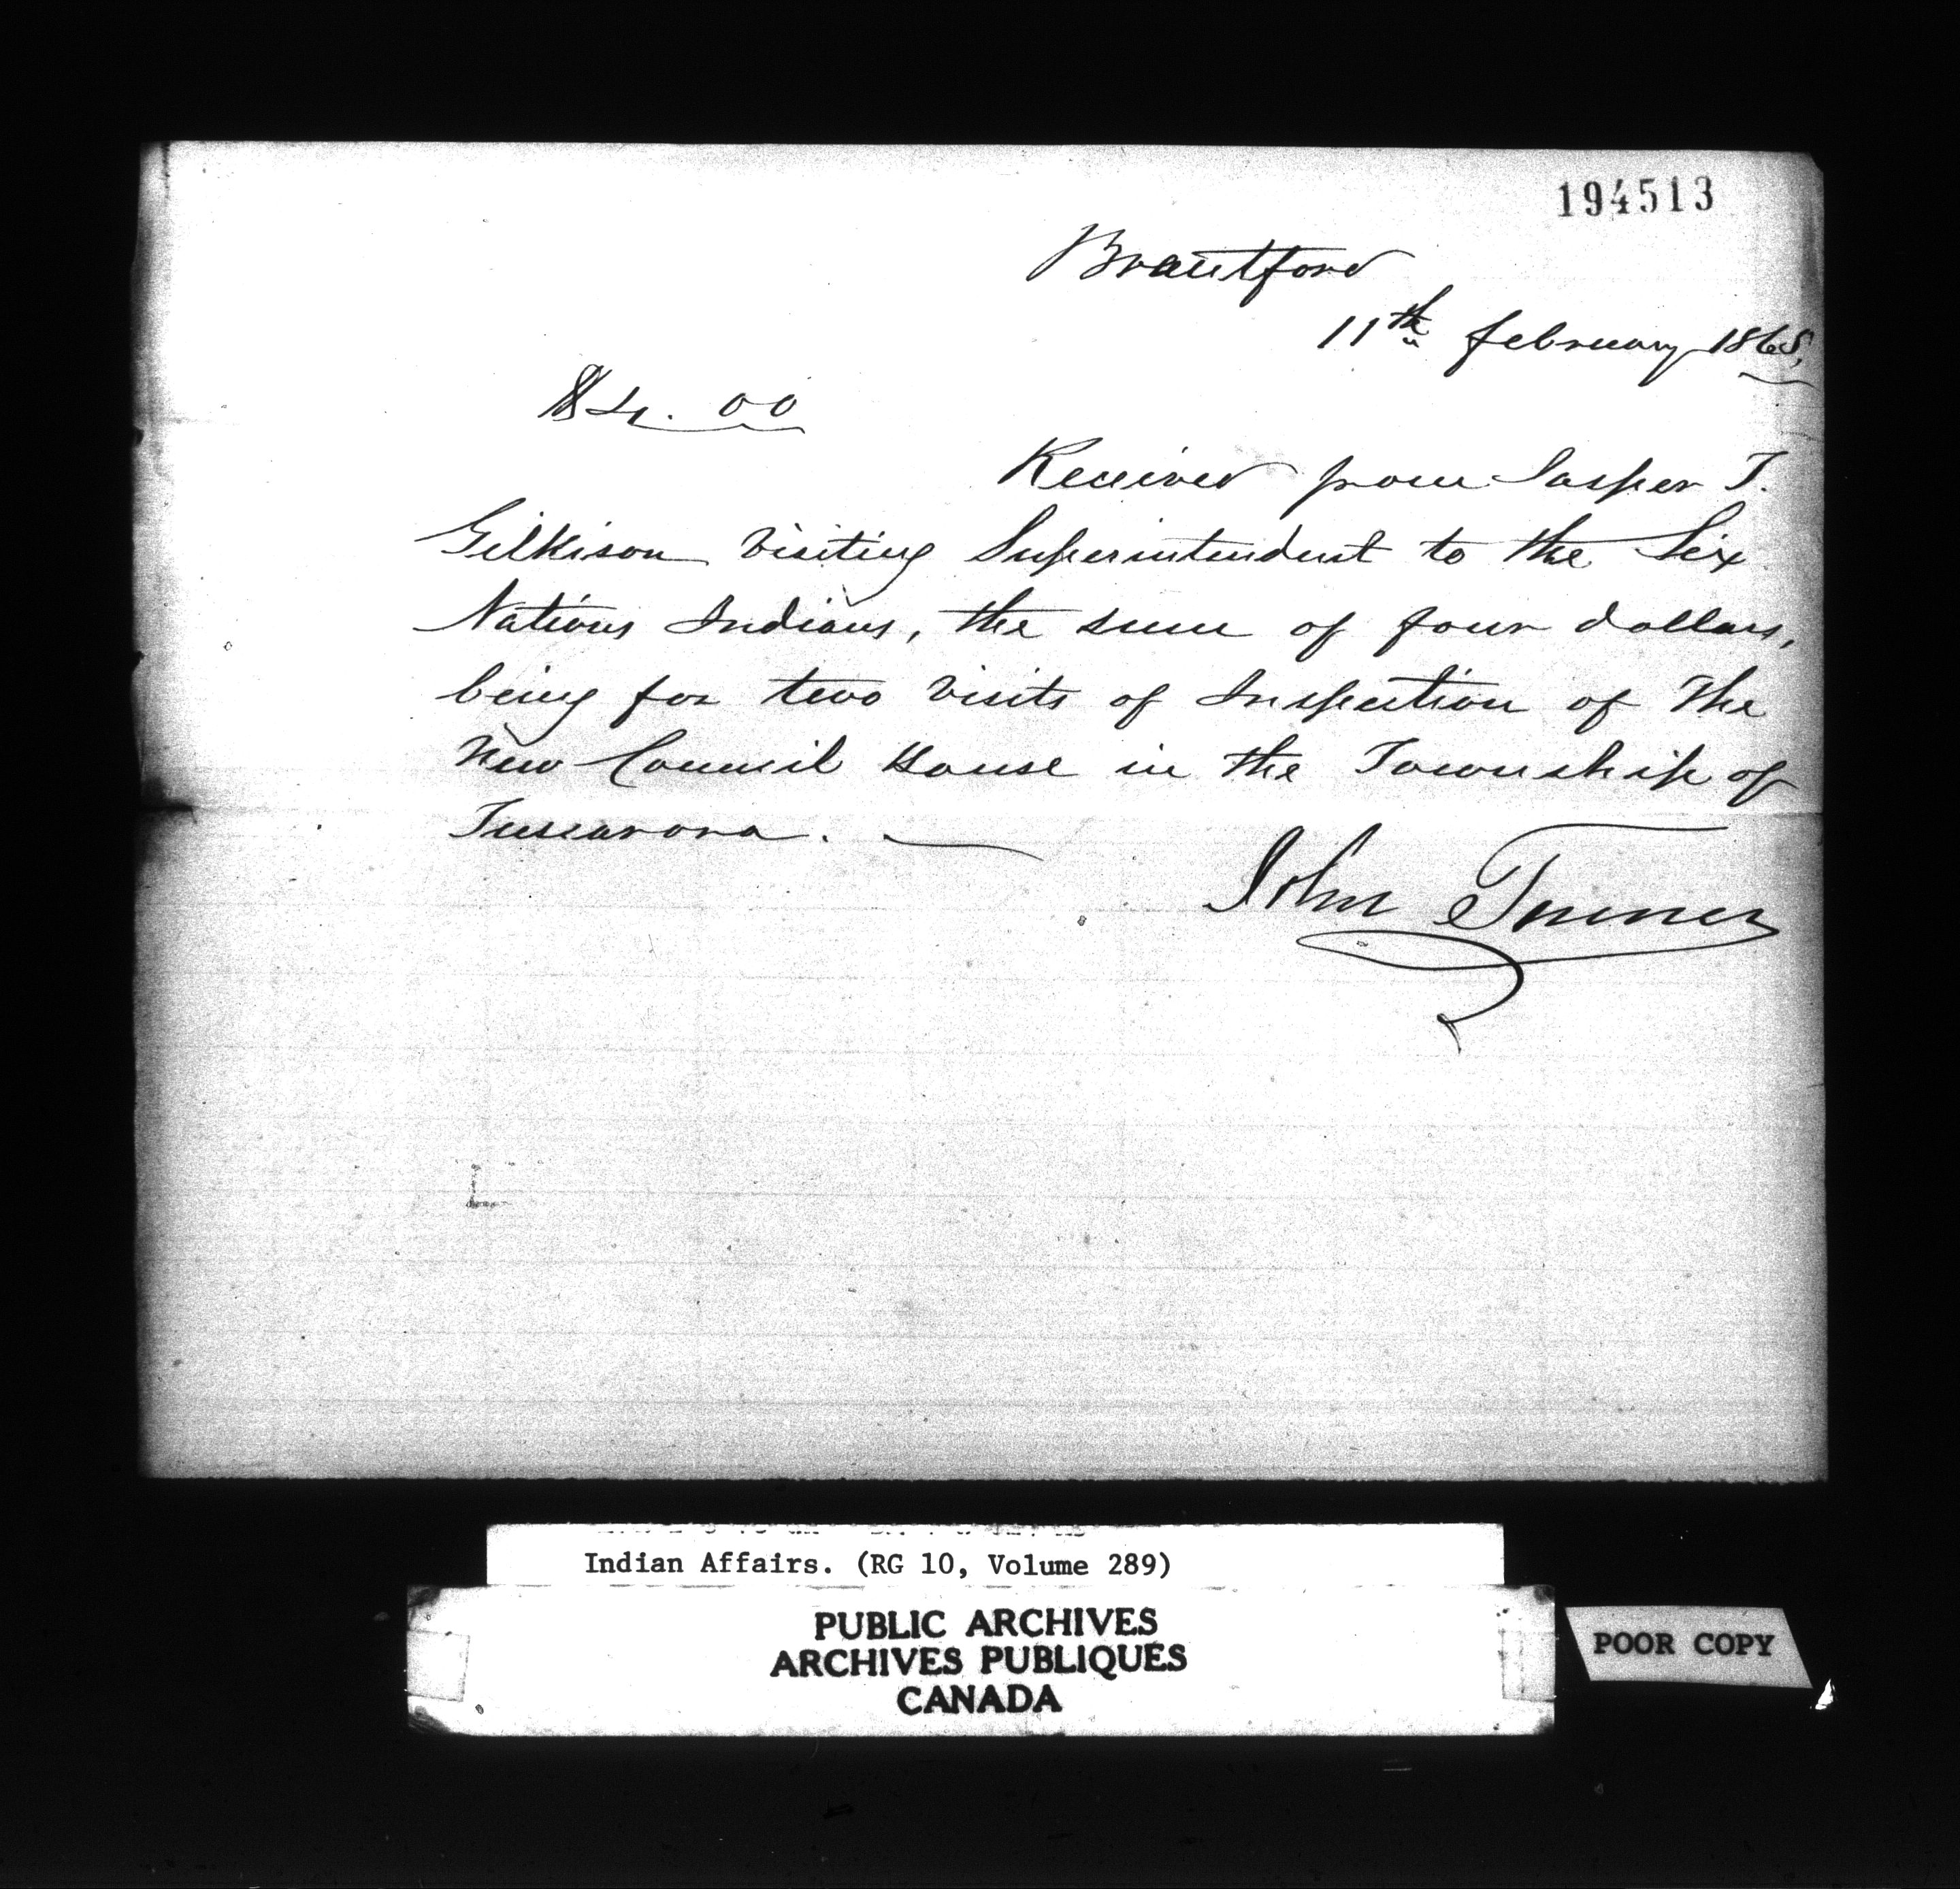 194513
Brantford
11th february 1868.
$4. 00
Received from Jasper T.
Gilkison Visiting Superintendent to the Six
Nations Indians, the sum of four dollars,
being for two Visits of Inspection of the
New Council House in the Township of
Tuscarora.
John Turner
Indian Affairs. (RG 10, Volume 289)
PUBLIC ARCHIVES
ARCHIVES PUBLIQUES
CANADA
POOR COPY